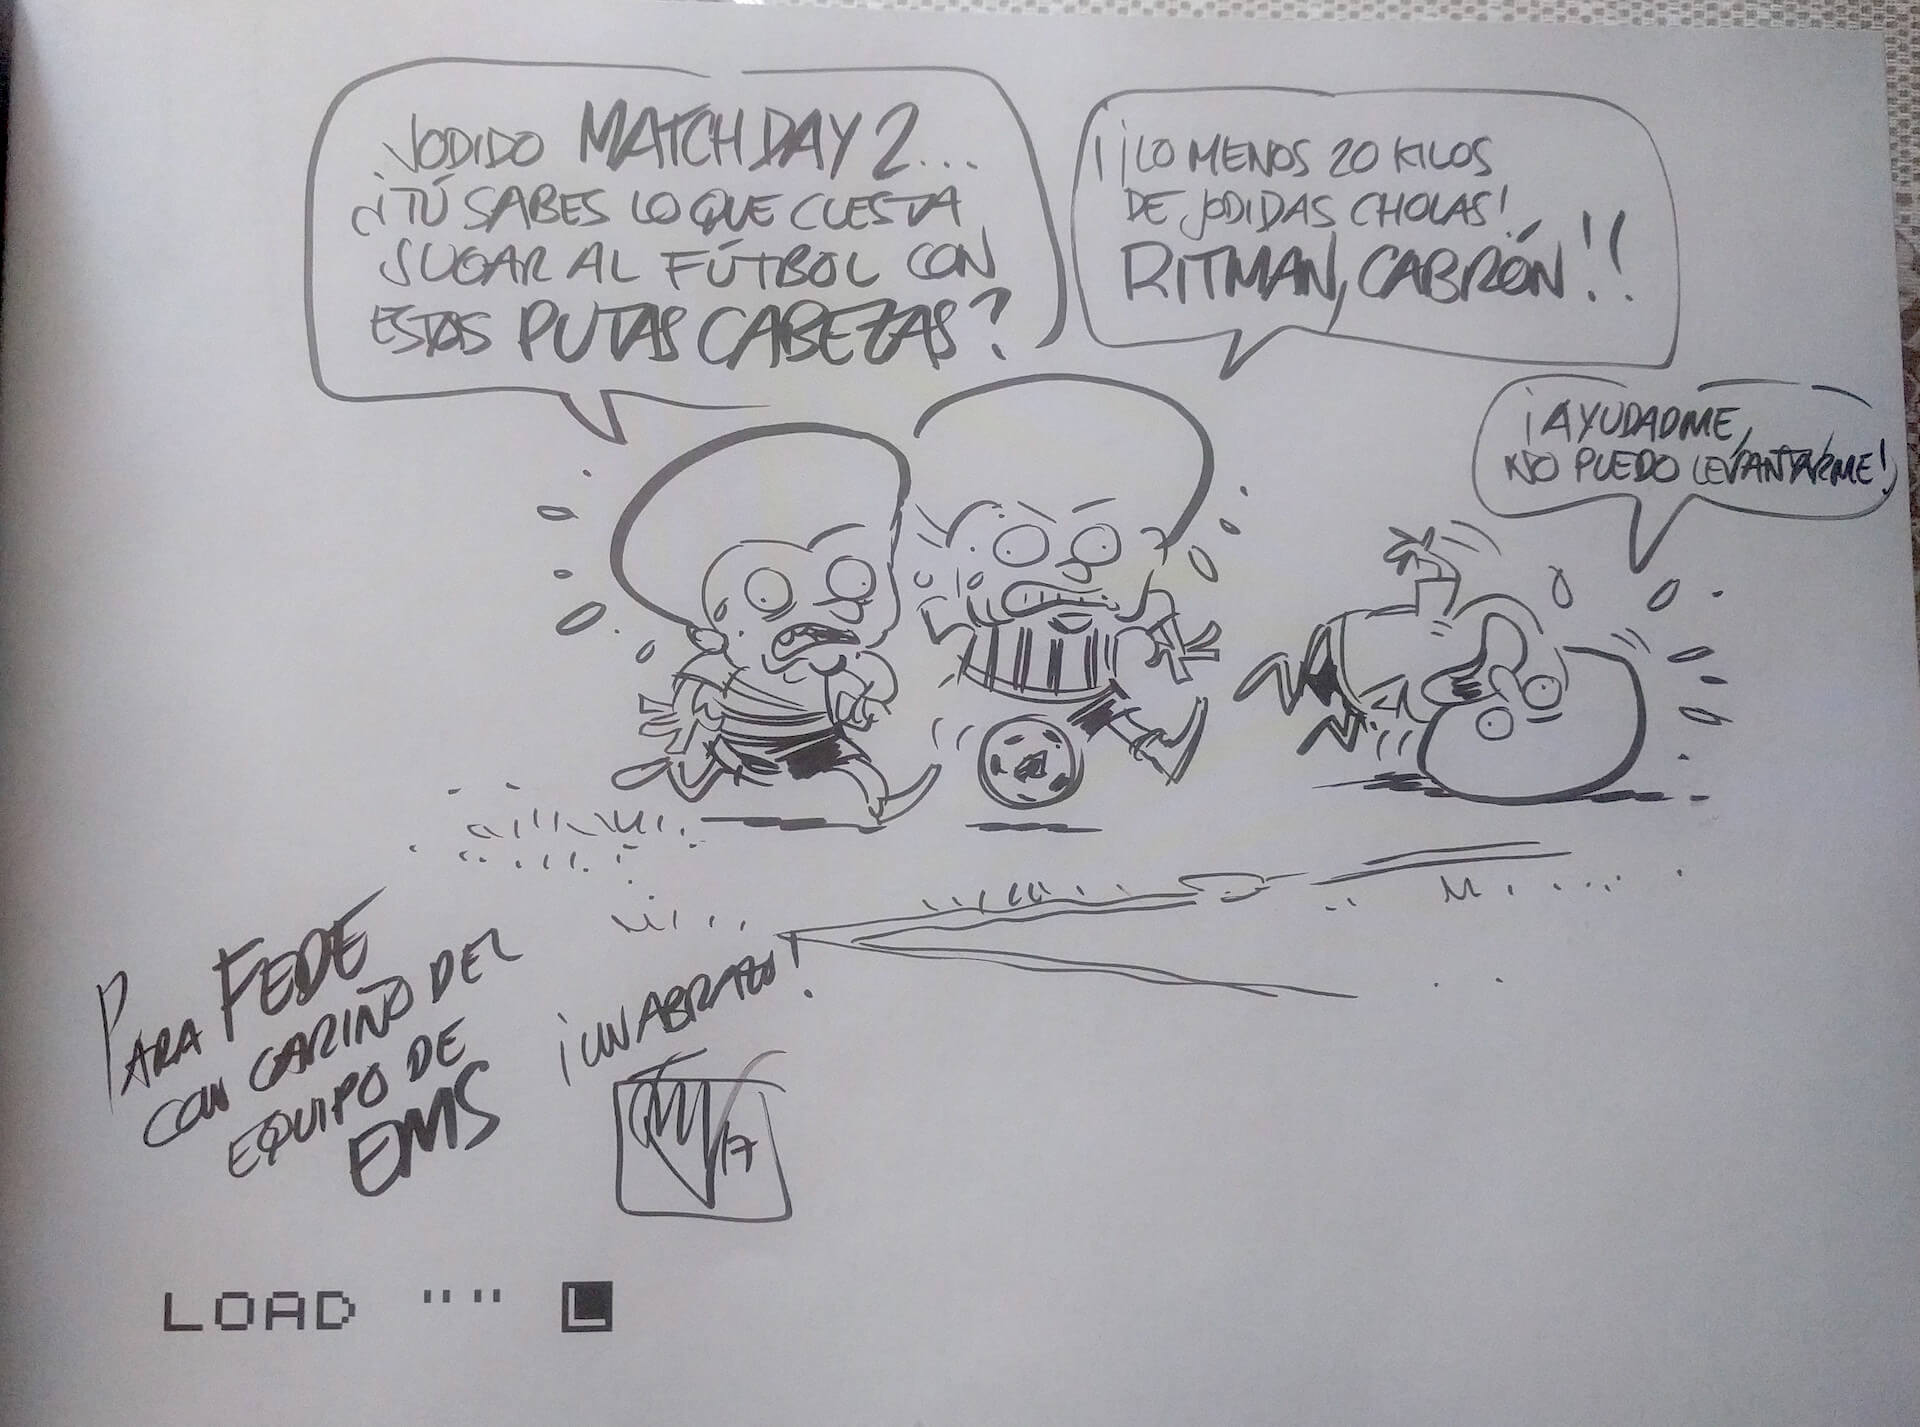 JODIDO MATCH DAY 2...
¿TÚ SABES LO QUE CUESTA
JUGAR AL FÚTBOL CON
ESTAS PUTAS CABEZAS?
¡¡LO MENOS 20 KILOS
DE JODIDAS CHOLAS!
RITMAN, CABRÓN!!
¡AYUDADME,
NO PUEDO LEVANTARME!
PARA FEDE
CON CARIÑO DEL
EQUIPO DE
EMS
¡UN ABRAZO!
17
LOAD "" L